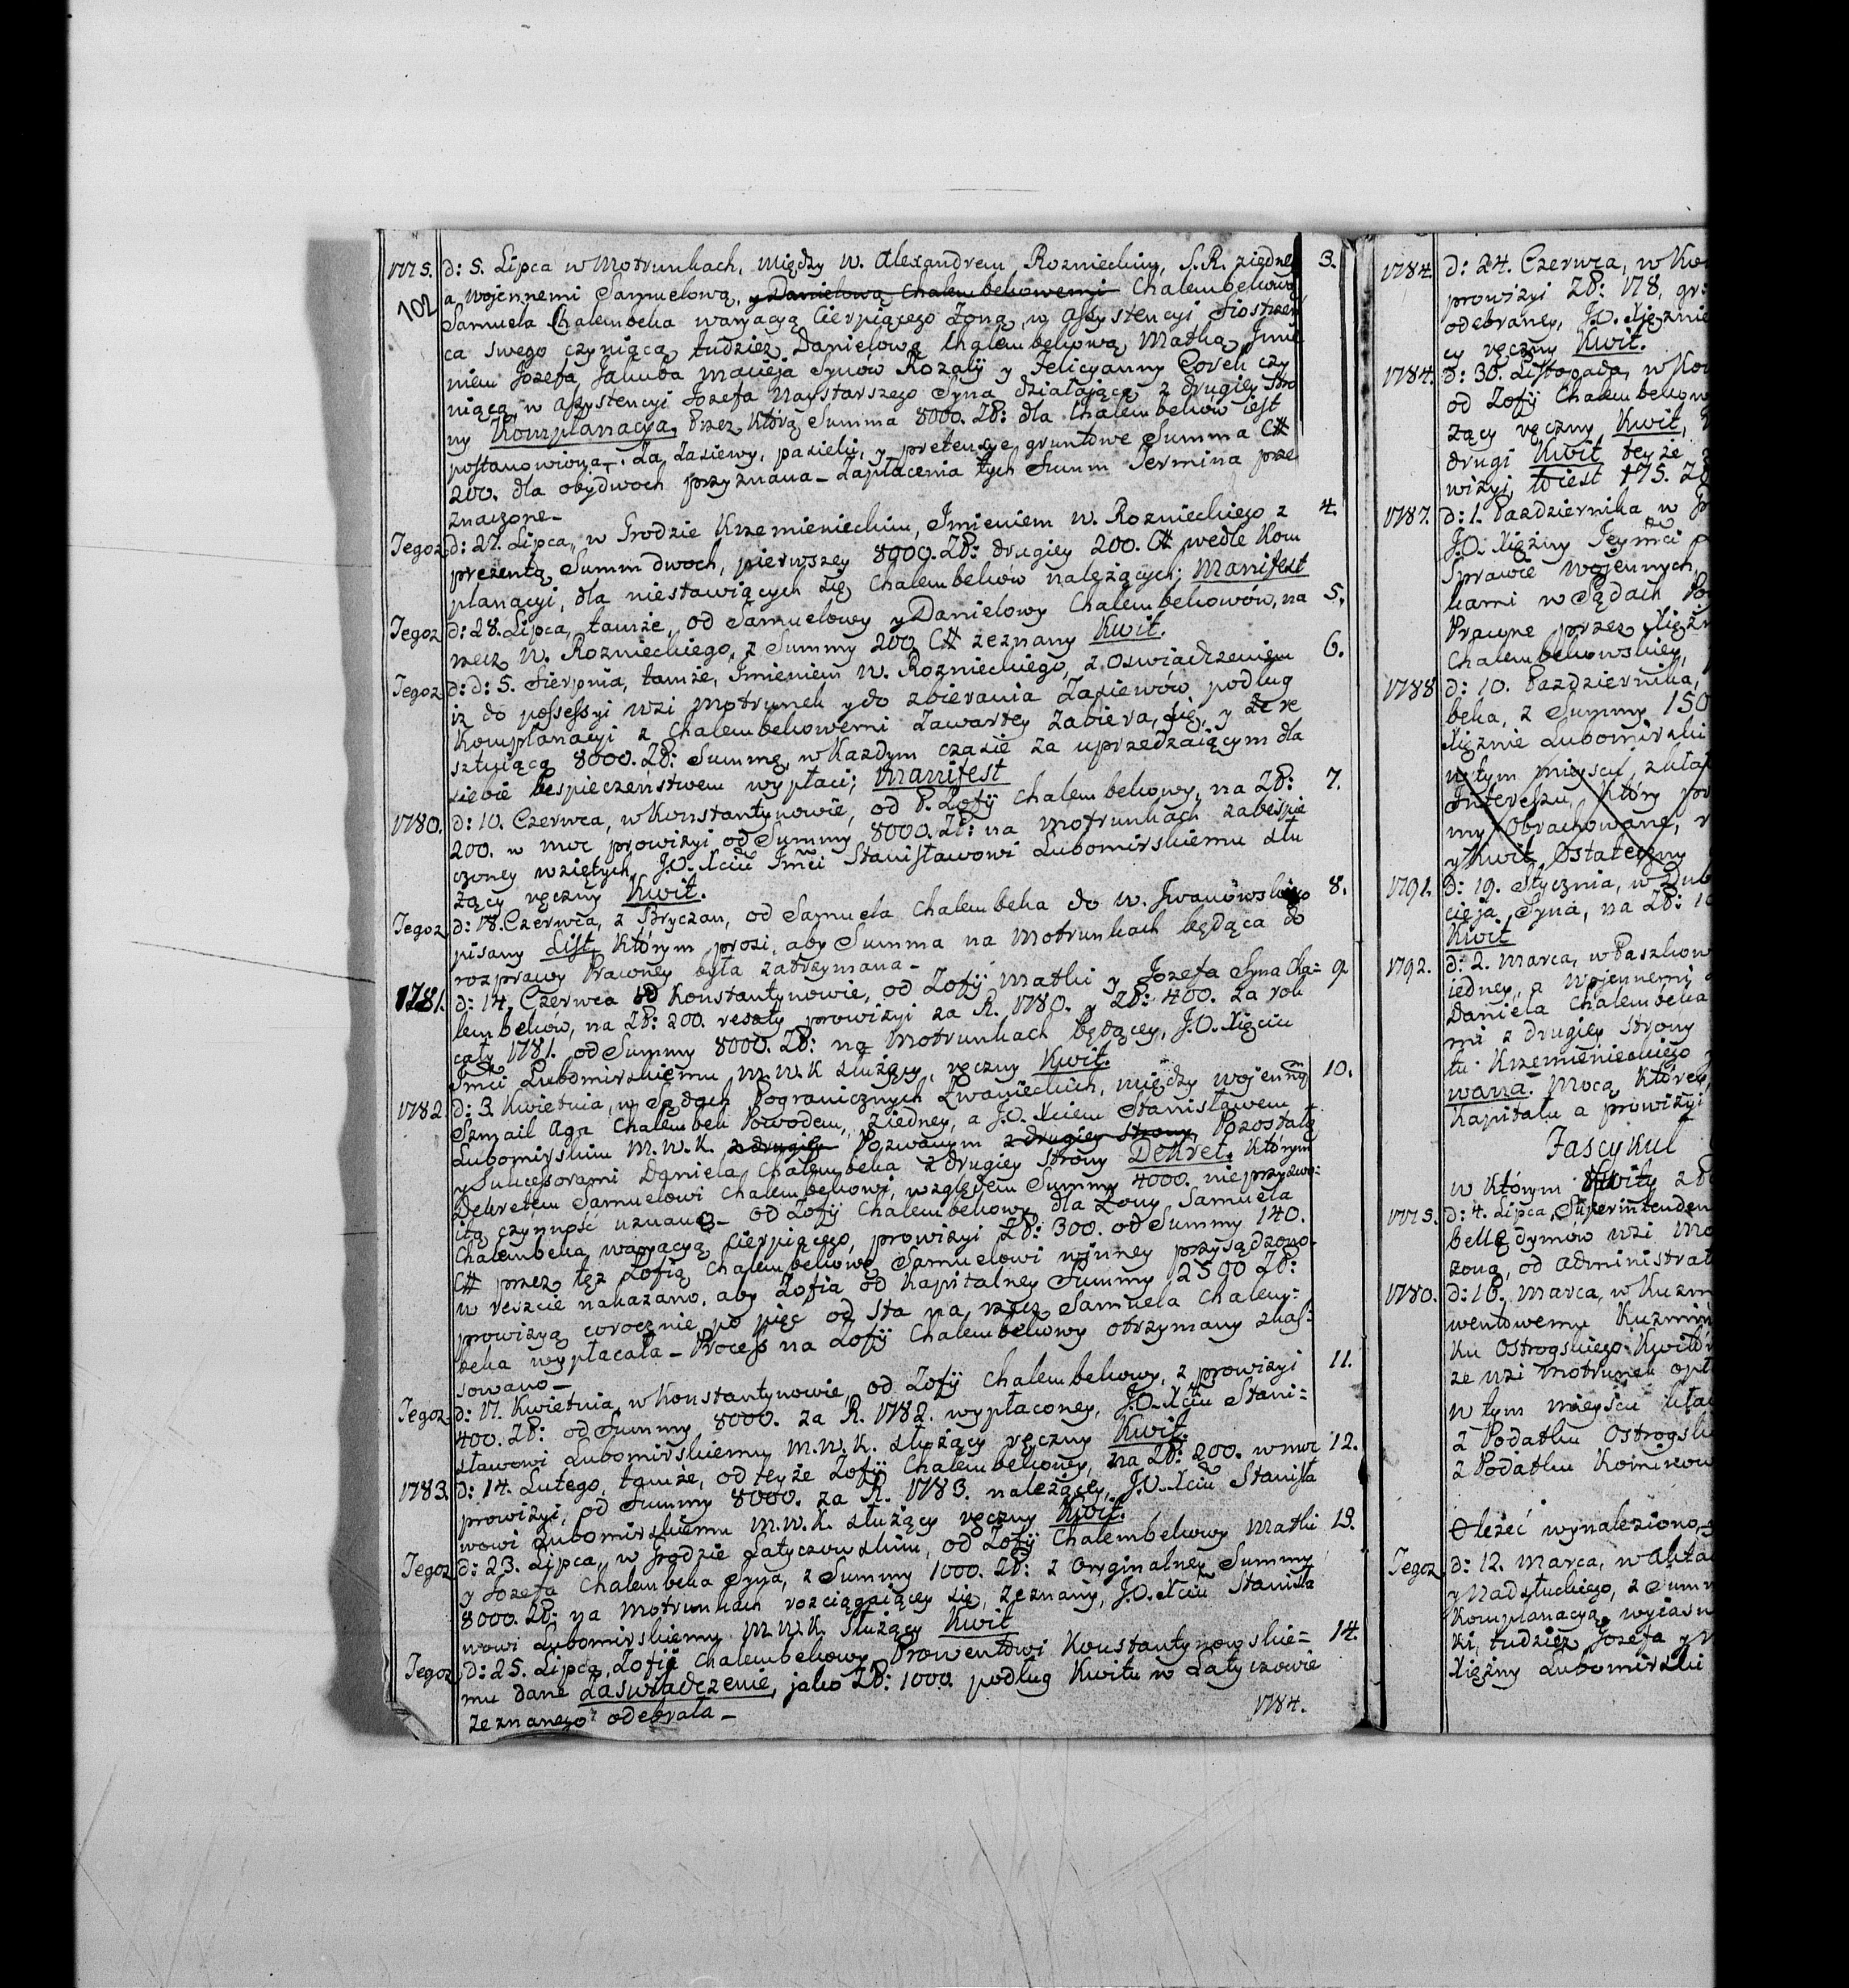 1775. d: 5. Lipca w Motrunkach, między W. Alexandrem Roznieckim, S.R. ziedney 3.
102 a Wojennemi Samuelową, y Danielową Chalembekowemi Chalembekową
Samuela Chalembeka waryacyą Cierpiącego Zoną, w Assystencyi Siostrzeń
ca swego czyniącą, tudziez Danielową Chalembekową, Matką, Jmie
niem Jozefa, Jakuba Macieja Synów Rozaly y Felicyanny Corek czy
niącą, w Assystencyi Jozefa Naystarszego Syna działającą z drugiey Stro
ny Komplanacya, Przez Którą Summa 8000. Zł: dla Chalembeków iest
postanowiona. Za Zasiewy, pasieki, y pretensye gruntowe Summa C#
200. dla obydwoch przyznana _ Zapłacenia tych Summ Termina prze
znaczone _
Tegoz d: 27. Lipca, w Grodzie Krzemienieckim, Jmieniem W. Roznieckiego z 4.
prezentą Summ dwoch, pierwszey 8000. Zł: drugiey 200. C# wedle Kom
planacyi, dla niestawiących się Chalembeków należących; Manifest
Tegoz d: 28. Lipca, tamże, od Samuelowy y Danielowy Chalembekowów, na 5.
rzecz W. Roznieckiego, z Summy 200 C# zeznany Kwit.
Tegoz d: d: 5. Sierpnia, tamże, Jmieniem W. Roznieckiego, z Oswiadczeniem 6.
iż do possessyi wsi Motrunek y do zbierania Zasiewów podług
Komplanacyi z Chalembekowemi Zawartey Zabiera, się, y że re
sztuiącą 8000. Zł: Summę, w Każdym czasie za uprzedzaiącym dla
siebie bespieczeństwem wypłaci; Manifest
1780. d: 10. Czerwca, w Konstantynowie, od P. Zofij Chalembekowy, na Zł: 7.
200. w moc prowizyi od Summy 8000. Zł: na Motrunkach zabespie
czoney wziętych, J.O. Xciu Jmci Stanisławowi Lubomirskiemu słu
żący ręczny Kwit.
Tegoz d: 18. Czerwca, z Bryczan, od Samuela Chalembeka do W. Jwanowskiego 8.
pisany List, Którym prosi, aby Summa na Motrunkach będąca do
rozprawy Prawney była zatrzymana _
1781. d: 14. Czerwca w Konstantynowie, od Zofij Matki y Jozefa Syna Cha= 9
lembeków, na Zł: 200. reszty prowizyi za R. 1780. y Zł: 400. za rok
cały 1781. od Summy 8000. Zł: na Motrunkach będącey, J.O. Xięciu
Jmci Lubomirskiemu M.W.K służący, ręczny Kwit.
1782. d: 3. Kwietnia, w Sądach Pogranicznych Zwanieckich, między wojenną 10.
Szmail Aga Chalembek Powodem, ziedney, a J.O. Xciem Stanisławem
Lubomirskim M.W.K. z drugiey Pozwanym z drugiey strony, Pozostałą
y Sukcessorami Daniela Chalembeka z drugiey Strony Dekret. Którym
Dekretem Samuelowi Chalembekowi, względem Summy 4000. nieprzyzwo=
itą czynność uznano _ od Zofij Chalembekowy dla Zony Samuela
Chalembeka, waryacyą cierpiącego, prowizyi Zł: 300. od Summy 140.
C# przez tęż Zofią Chalembekowę Samuelowi winney przysądzono.
w reszcie nakazano, aby Zofia od Kapitalney Summy 2500 Zł:
prowizyą corocznie po pięć od sta na rzecz Samuela Chalem=
beka wypłacała _ Process na Zofij Chalembekowy otrzymany skas=
sowano _
Tegoz d: 17. Kwietnia, w Konstantynowie, od Zofij Chalembekowy, z prowizyi 11.
400. Zł: od Summy 8000. za R. 1782. wypłaconey, J.O. Xciu Stani=
sławowi Lubomirskiemu M.W.K. służący ręczny Kwit.
1783. d: 14. Lutego, tamże, od teyże Zofij Chalembekowey, na Zł: 200. w moc 12.
prowizyi, od Summy 8000. za R. 1783. należącey, J.O. Xciu Stanisła
wowi Lubomirskiemu M.W.K. służący ręczny Kwit.
Tegoz d: 23. Lipca, w Grodzie Latyczowskim, od Zofij Chalembekowy Matki 13.
y Jozefa Chalembeka Syna, z Summy 1000. Zł: z Oryginalney Summy
8000. Zł: na Motrunkach rozciągaiącey się, zeznany, J.O. Xciu Stanisła
wowi Lubomirskiemu M.W.K. służący Kwit
Tegoz d: 25. Lipca, Zofij Chalembekowy Prowentowi Konstantynowskie= 14.
mu dane Zaswiadczenie, jako Zł: 1000. podług Kwitu w Latyczowie
zeznanego odebrała _
1784.
1784. d: 24. Czerwca, w Ko
prowizyi Zł: 178, gr
odebraney, J.O. Xiężnie
cy ręczny Kwit.
1784. d: 30. Listopada, w Kon
od Zofij Chalembekow
żący ręczny Kwit,
drugi Kwit teyże
wizyi, to iest 175. Zł
1787. d: 1. Pazdziernika w
J.O. Xiężny Jeymci
Sprawie wojennych,
kami w Sądach Po
Prawne przez Xiężn
Chalembekowskiey,
1788 d: 10. Pazdziernika,
beka, z Summy 150
Xiężnie Lubomirski
w tym mieyscu zkła
Jnteressu, Który pr
my Obrachowane,
y Kwit Ostateczny
1791. d: 19. Stycznia, w Dub
cieja Syna, na Zł: 1
Kwit
1792. d: 2. Marca, w Paszkow
iedney, a Wojennemi
Daniela Chalembeka
mi z drugiey strony
tu Krzemienieckiego
wana. Mocą Którey,
Kapitału a prowizyi
Fascykuł
w Którym Kwity z Po
1775. d: 4. Lipca, Superintenden
belle dymów wsi Mo
zona, od Administrat
1780. d: 10. Marca, w Kuzm
wentowemu Kuzmin
ku Ostrogskiego Kwitów
ze wsi Motrunek opł
w tym mieyscu
z Podatku Ostrogsk
z Podatku Kominow
Oleżeć wynaleziono,
Tegoz d: 12. Marca, w Akta
y Nadsłuckiego, z Summ
Komplanacyą, wyiasn
ki, tudziez Jozefa y
Xiężny Lubomirski